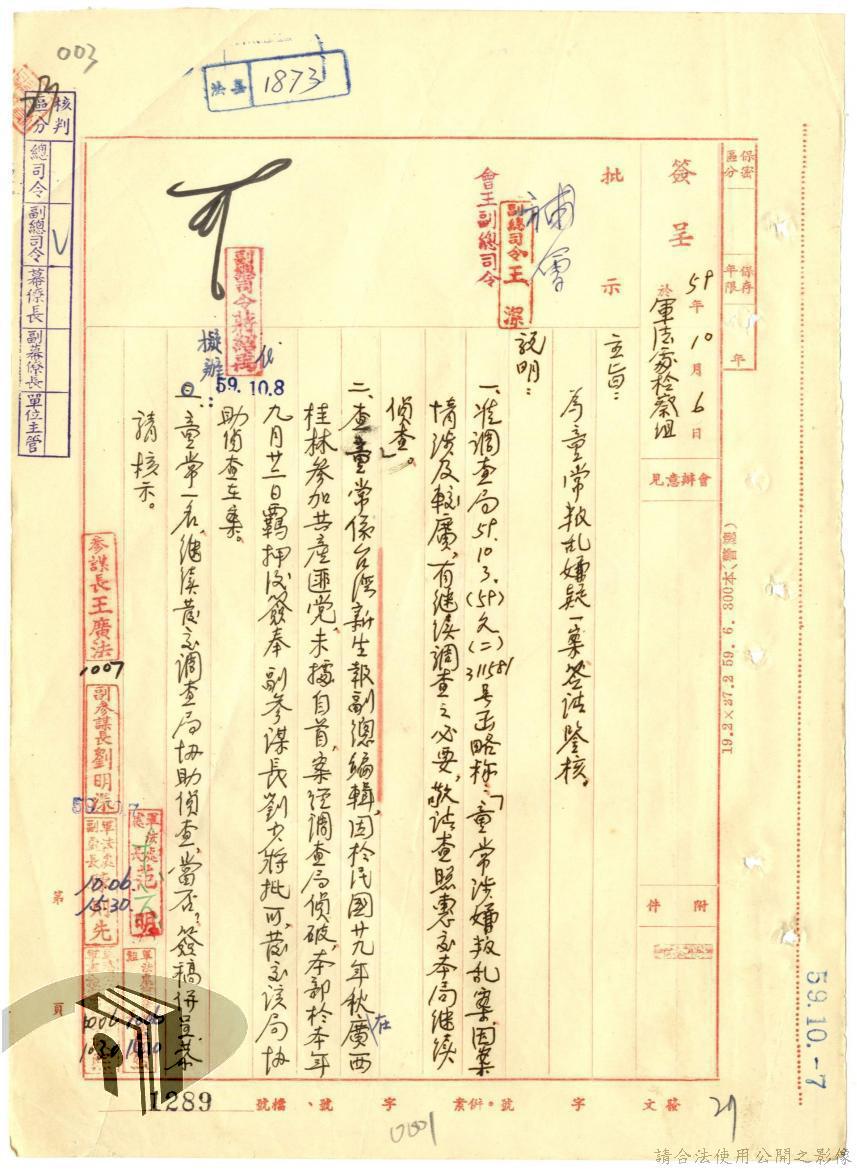 003
法昌 1873
核判區分
總司令
副總司令
幕僚長
副幕僚長
單位主管
保密區分
保存年限
年
簽呈
59年10月6日
於軍法處檢察組
會辦意見
附件
批示
補會
會王副總司令
副總司令王潔
可
副總司令蔣紹禹代
59.10.8
主旨：
為童常叛乱嫌疑一案签請鑒核。
說明：
一、准調查局59.10.3.(59)文(二)311581号函略称：「童常涉嫌叛乱案，因案
情涉及較廣，有继续調查之必要，敬請查照惠交本局继续
偵查。」
二、查童常係台湾新生報副總編輯，因於民國廿九年秋在廣西
桂林参加共產匪党，未據自首，案經調查局偵破，本部於本年
九月廿二日羈押後簽奉 副参谋長劉少将批可，發交该局协
助偵查在案。
擬辦：
童常一名，继续發交調查局协助偵查，當否？簽稿併呈恭
請核示。
參謀長王廣法
1007
副參謀長劉明深
59.10.7
軍法處處長范明
軍法處副處長
10.06
15.30
1006
1030
1006
1410
第
頁
19.2×27.2 59. 6. 300本(警總)
59.10.-7
發文
字
號。併案
字
號、檔號
1289
0001
21
請合法使用公開之影像